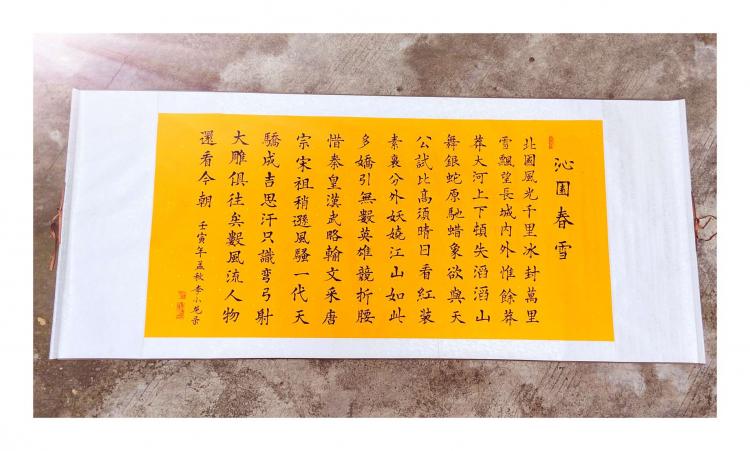 沁園春雪
北國風光千里冰封萬里
雪飄望長城内外惟餘莽
莽大河上下頓失滔滔山
舞銀蛇原馳蜡象欲與天
公試比高須晴日看紅裝
素裹分外妖嬈江山如此
多嬌引無數英雄競折腰
惜秦皇漢武略翰文采唐
宗宋祖稍遜風騷一代天
驕成吉思汗只識彎弓射
大雕俱往矣數風流人物
還看今朝
壬寅年孟秋李小